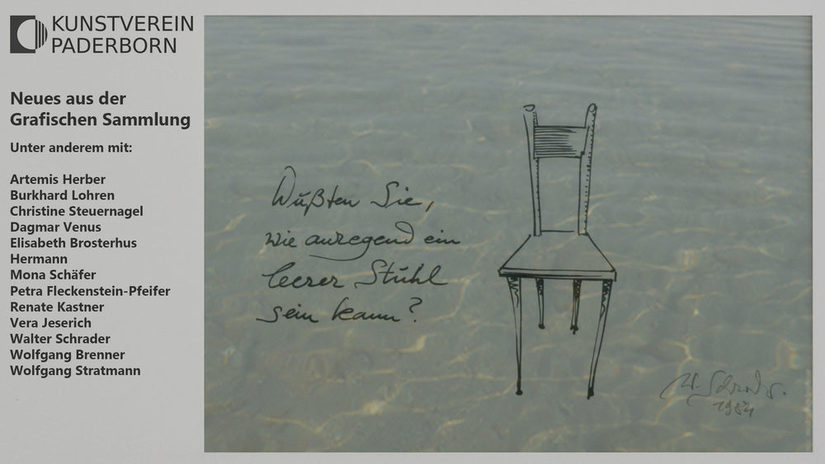 KUNSTVEREIN
PADERBORN
Neues aus der
Grafischen Sammlung
Unter anderem mit:
Artemis Herber
Burkhard Lohren
Christine Steuernagel
Dagmar Venus
Elisabeth Brosterhus
Hermann
Mona Schäfer
Petra Fleckenstein-Pfeifer
Renate Kastner
Vera Jeserich
Walter Schrader
Wolfgang Brenner
Wolfgang Stratmann
Wußten Sie,
wie anregend ein
leerer Stuhl
sein kann?
W. Schrader.
1984